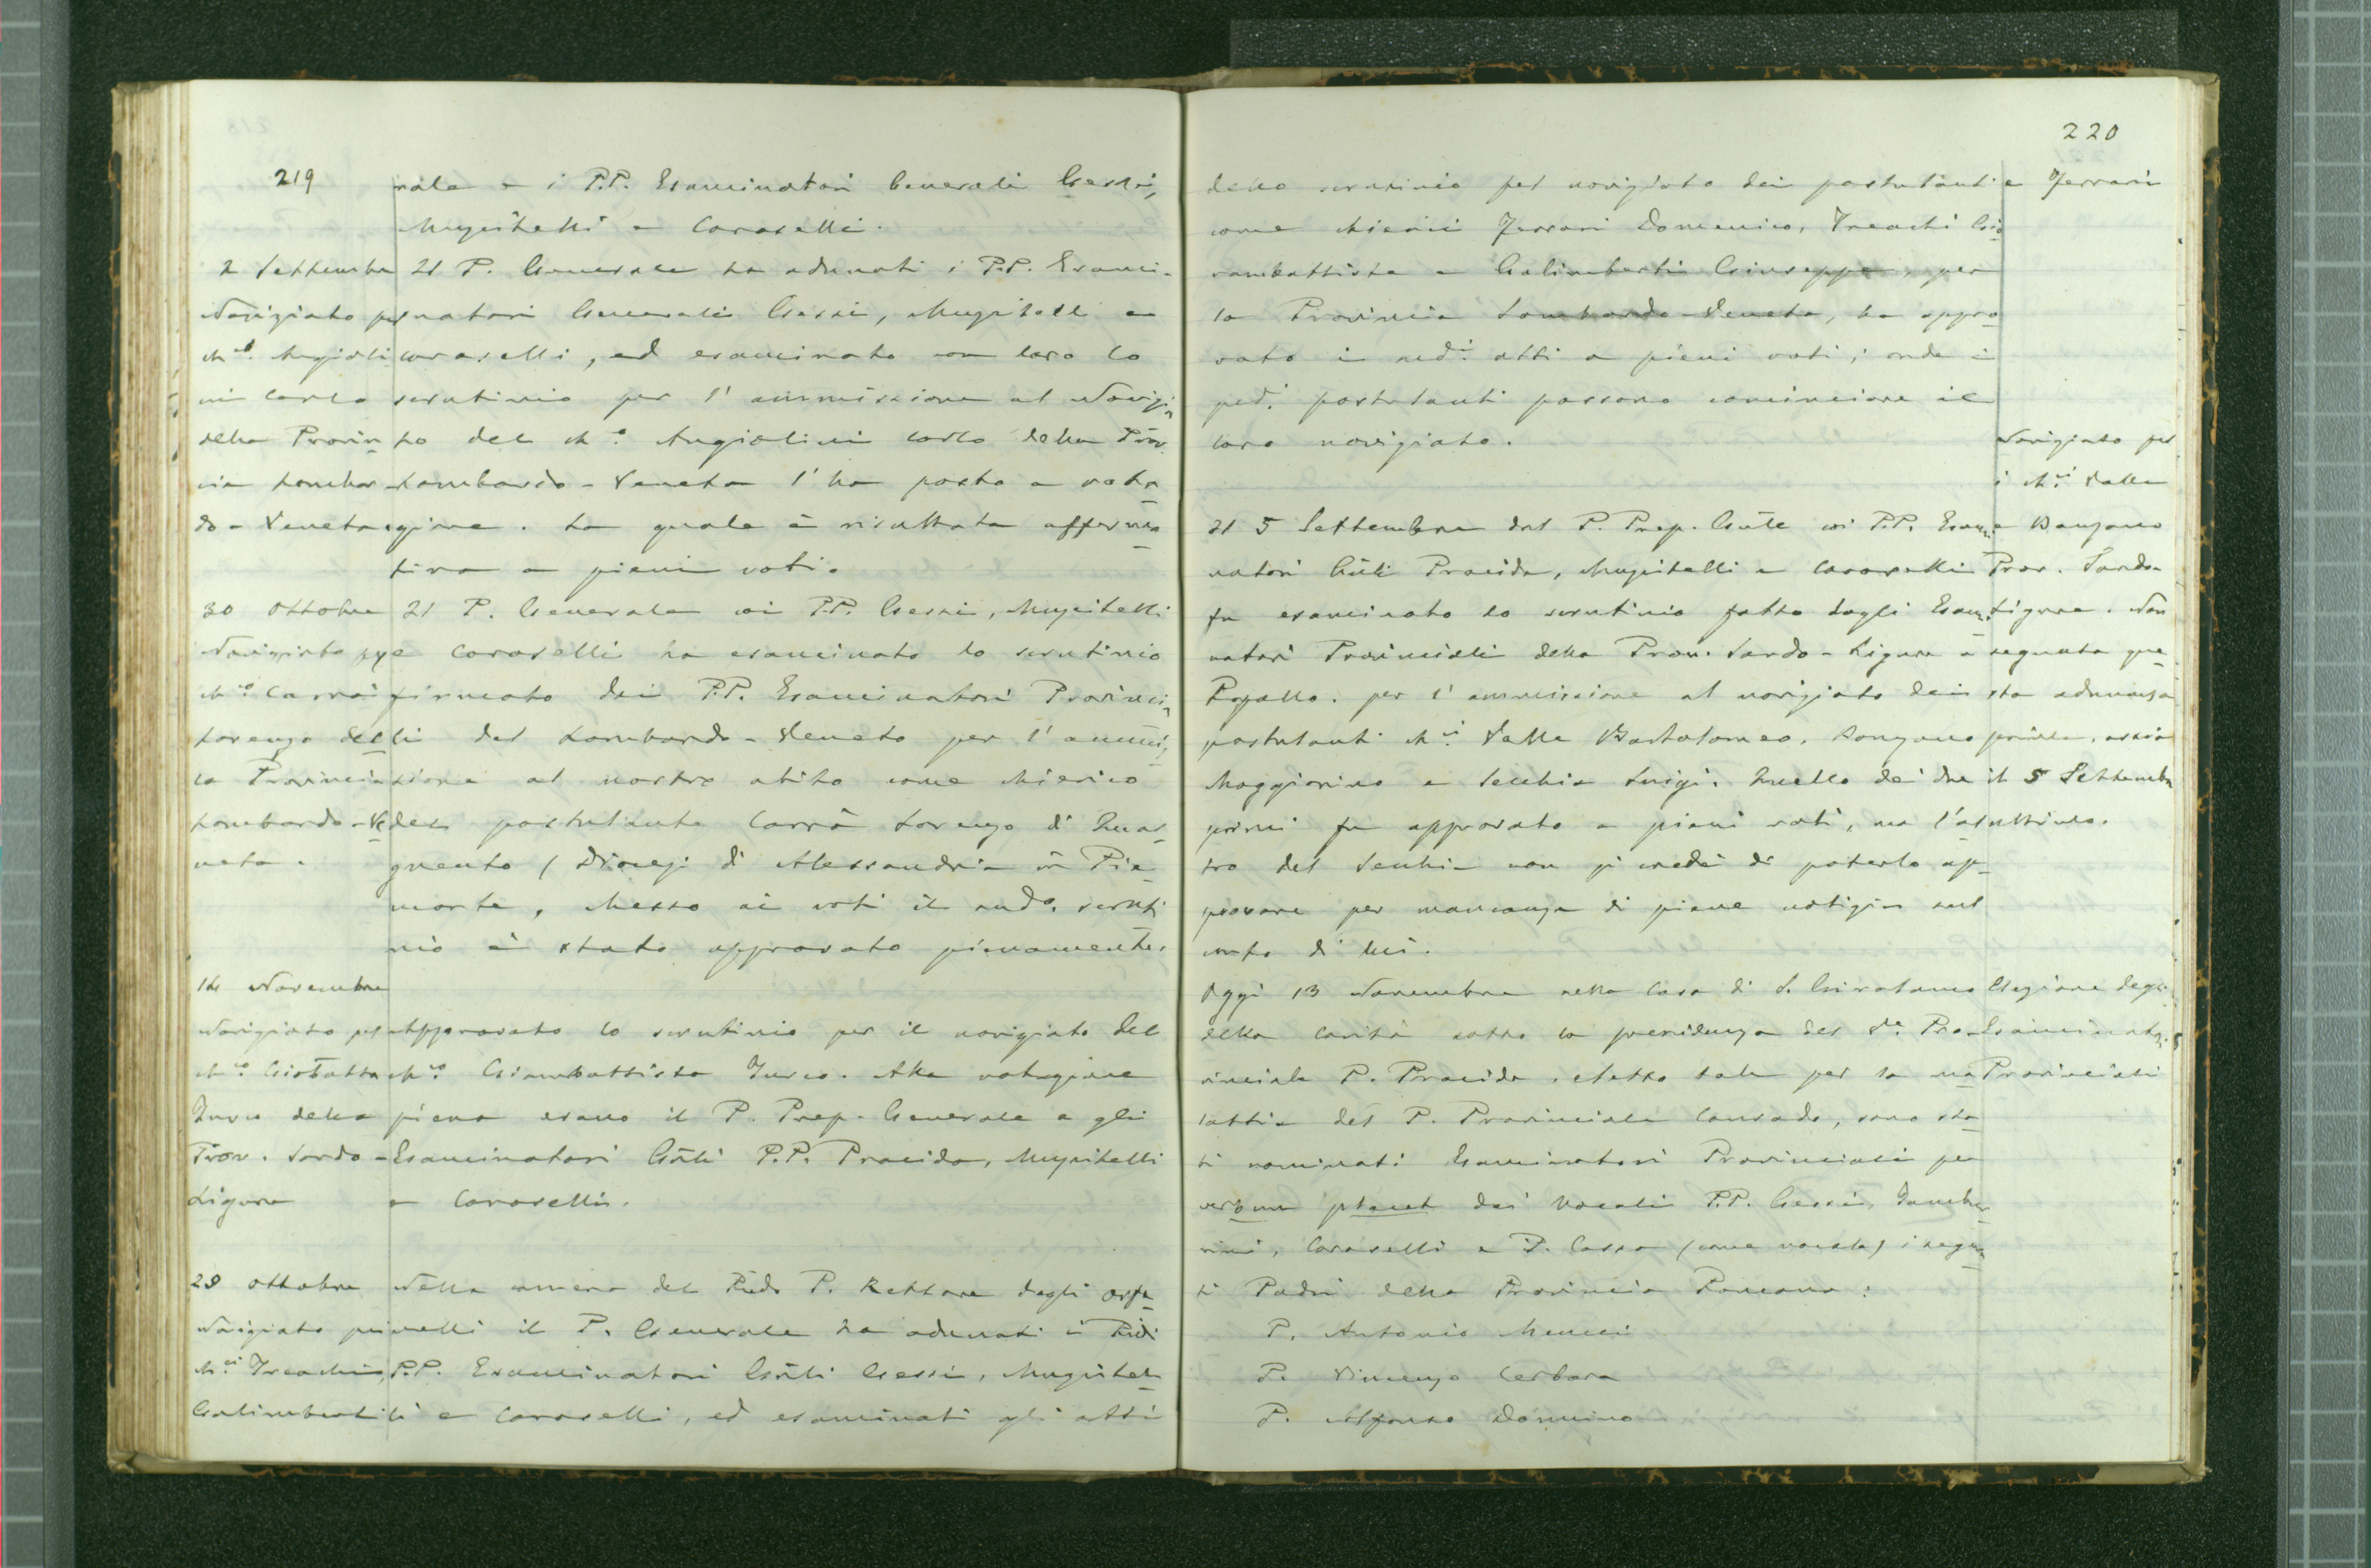 219
rale e i P.P. Esaminatori Generali Gessi,
Muzzitelli e Caroselli.
2 Settembre
Noviziato pel
Ch.co Angioli
ni Carlo
della Provin
cia Lombar
do-Veneta
Il P. Generale ha adunati i P.P. Esami-
natori Generali Gessi, Muzzitelli e
Caroselli, ed esaminato con loro lo
scrutinio per l'ammissione al Novizia
to del Ch.o Angiolini Carlo della Prov.
Lombardo-Veneta l'ha posto a vota
zione. La quale è risultata afferma
tiva a pieni voti.
30 Ottobre
Noviziato pel
Ch.co Carrà
Lorenzo del
la Provincia
Lombardo-Ve
neta.
Il P. Generale coi P.P. Gessi, Muzzitelli
e Caroselli ha esaminato lo scrutinio
firmato dai P.P. Esaminatori Provincia
li del Lombardo-Veneto per l'ammis
sione al nostro abito come chierico
del postulante Carrà Lorenzo di Quar
gnento (Diocesi di Alessandria in Pie
monte, Messo ai voti il sud.o scruti
nio è stato approvato pienamente.
14 Novembre
Noviziato pel
Ch.co Giobatta
Turco della
Prov. Sardo-
Ligure
Approvato lo scrutinio per il noviziato del
Ch.co Giambattista Turco. Alla votazione
piena erano il P. Prep. Generale e gli
Esaminatori Gñli P.P. Procida, Muzzitelli
e Caroselli.
28 Ottobre
Noviziato pei
Ch.ci Treachi,
Galimberti
Nella camera del Rñdo P. Rettore degli orfa
nelli il P. Generale ha adunati i Rñdi
P.P. Esaminatori Gñli Gessi, Muzzitel
li e Caroselli, ed esaminati gli atti
220
dello scrutinio pel noviziato dei postulanti
come chierici Ferrari Domenico, Treachi Gio
vambattista e Galimberti Giuseppe, per
la Provincia Lombardo-Veneta, ha appro
vato i sud.i atti a pieni voti; onde i
pred.i postulanti possono cominciare il
loro noviziato.
e Ferrari
Il 5 Settembre dal P. Prep. Gñle coi P.P. Esami
natori Gñli Procida, Muzzitelli e Caroselli
fu esaminato lo scrutinio fatto dagli Esami
natori Provinciali della Prov. Sardo-Ligure a
Rapallo. per l'ammissione al noviziato dei
postulanti Ch.ci Valle Bartolomeo, Bonzano
Maggiorino e Secchia Luigi. Quello dei due
primi fu approvato a pieni voti, ma l'al
tro del Secchia non si credè di poterlo ap
provare per mancanza di piene notizie sul
conto di lui.
Noviziato pel
i Ch.ci Valle
e Bonzano
Prov. Sardo-
Ligure. Non
segnata que
sta adunanza
prima, ossia
il 5 Settembre
ultimo.
Oggi 13 Novembre nella Casa di S. Girolamo
della Carità sotto la presidenza del V.e Pro-
vinciale P. Procida, eletto tale per la ma
lattia del P. Provinciale Conrado, sono sta
ti nominati Esaminatori Provinciali per
verbum placet dai Vocali P.P. Gessi, Tambu
rini, Caroselli e P. Cossa (come vocale) i seguen
ti Padri della Provincia Romana:
P. Antonio Mencci
P. Vincenzo Cerbara
P. Alfonso Donnino
Elezione degli
Esaminatori
Provinciali